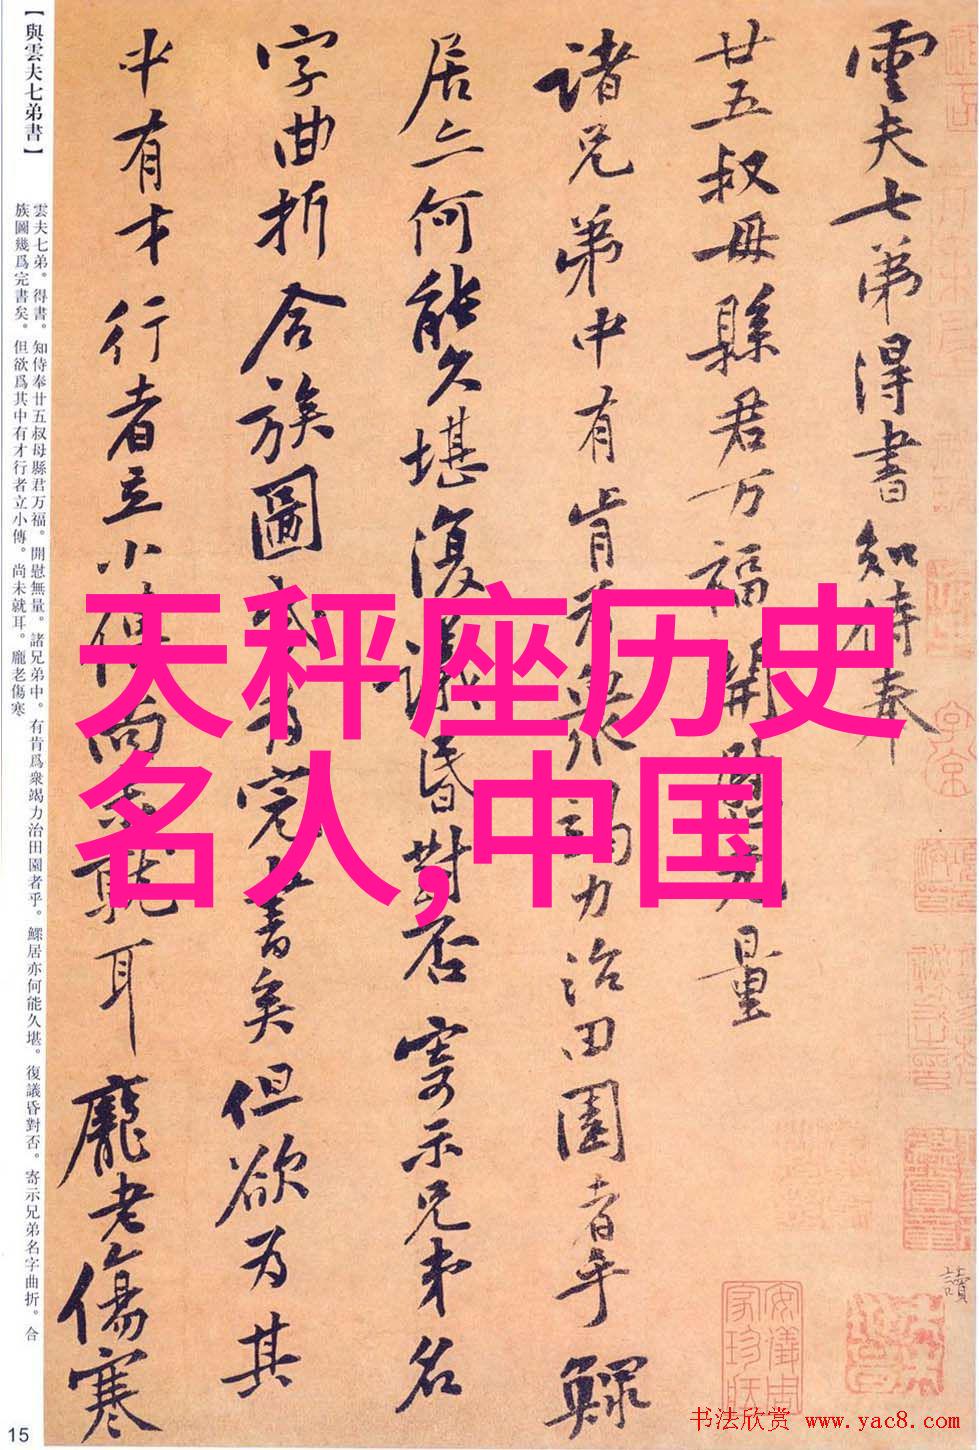 天秤座历史
名人,中国
雲夫七弟得書知侍奉
廿五叔母縣君万福開慰無量
諸兄弟中有肯为衆竭力治田園者乎鰥
居亦何能久堪復議昏對否寄示兄弟名
字曲折合族圖幾为完書矣但欲为其
中有才行者立小傳尚未就耳龐老傷寒
讀
【與雲夫七弟書】
雲夫七弟。得書。知侍奉廿五叔母縣君万福。開慰無量。諸兄弟中。有肯爲衆竭力治田園者乎。鰥居亦何能久堪。復議昏對否。寄示兄弟名字曲折。合
族圖幾爲完書矣。但欲爲其中有才行者立小傳。尚未就耳。龐老傷寒
15
书法欣赏 www.yac8.com